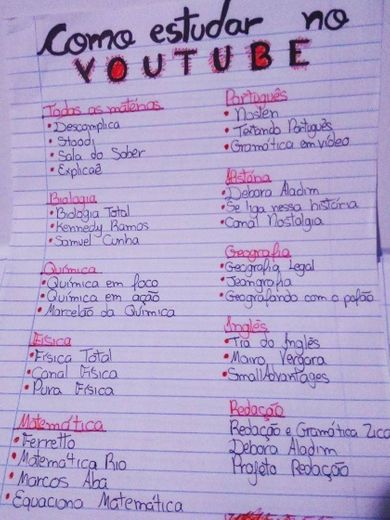 Como estudar no
YOUTUBE
Todas as matérias
• Descomplica
• Stoodi
• Sala do Saber
• Explicaê
Biologia
• Biologia Total
• Kennedy Ramos
• Samuel Cunha
Química
• Química em foco
• Química em ação
• Marcelão da Química
Física
• Física Total
• Canal Física
• Pura Física
Matemática
• Ferretto
• Matemática Rio
• Marcos Aba
• Equaciona Matemática
Português
• Noslen
• Testando Português
• Gramática em vídeo
História
• Debora Aladim
• Se liga nessa história
• Canal Nostalgia
Geografia
• Geografia Legal
• Jeangrafia
• Geografando com o pafão
Inglês
• Tia do Inglês
• Mairo Vergara
• SmallAdvantages
Redação
Redação e Gramática Zica
Debora Aladim
Projeto Redação